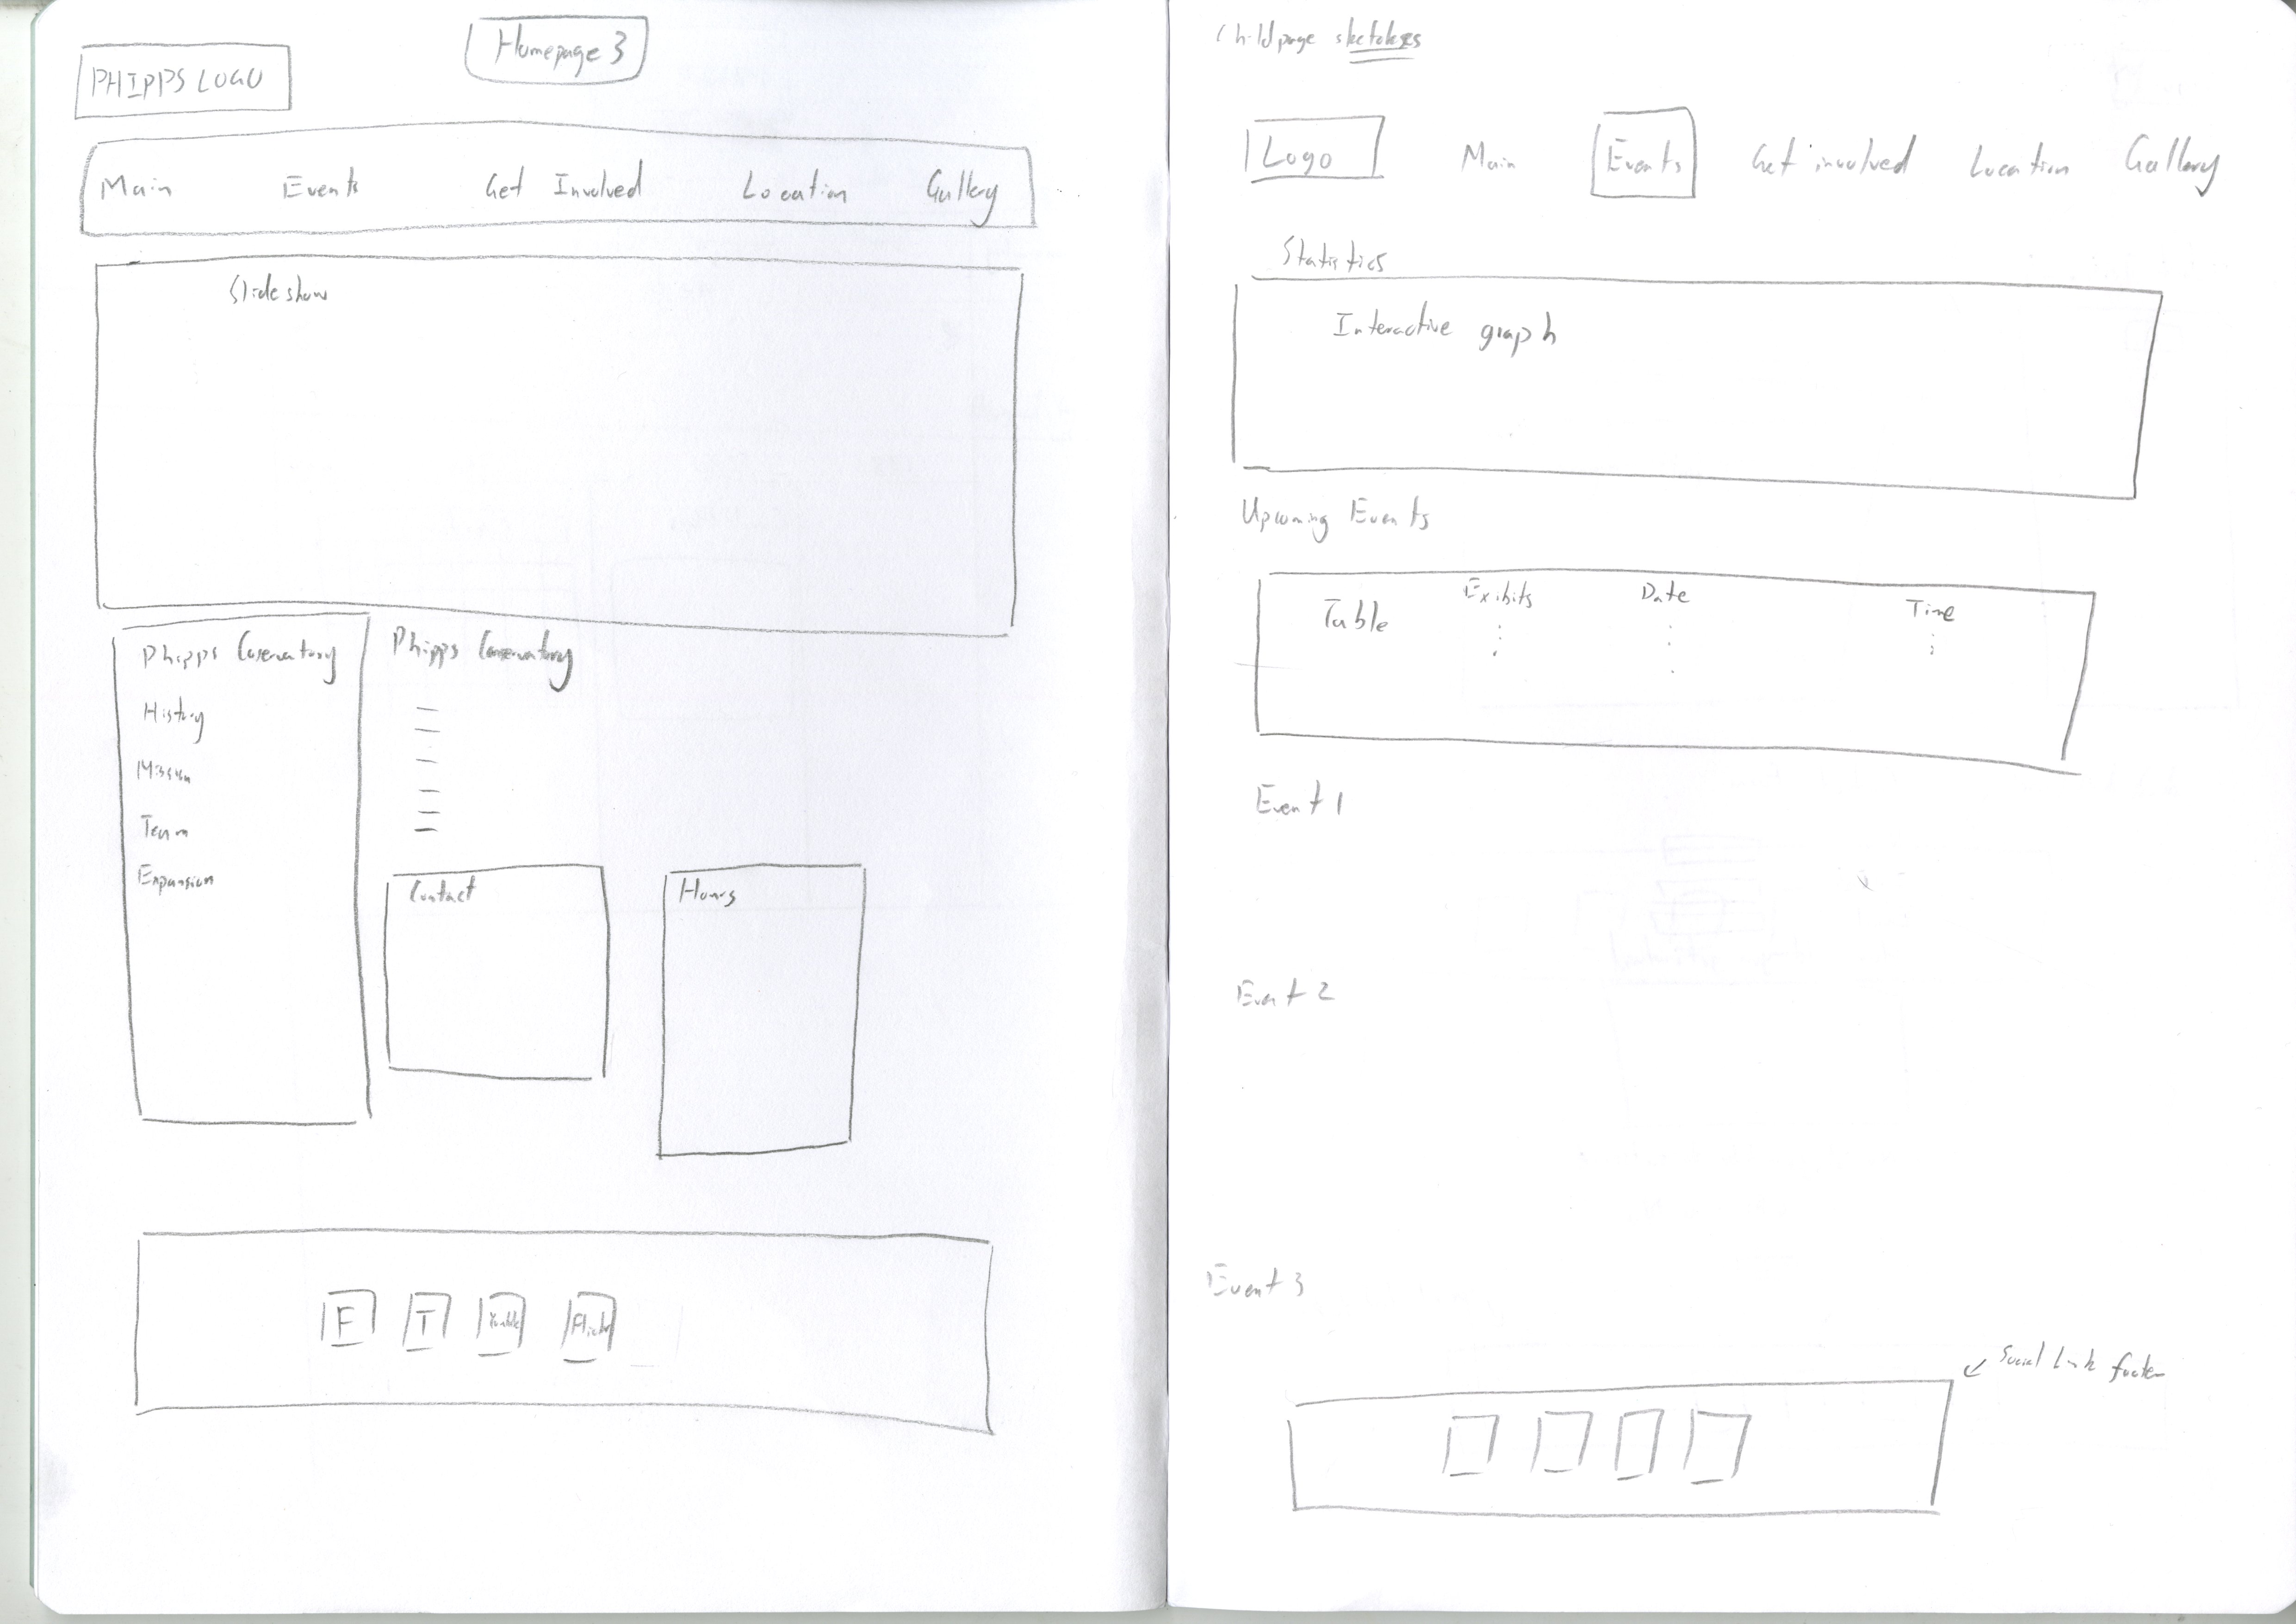 Homepage 3
PHIPPS LOGO
Main Events Get Involved Location Gallery
Slideshow
Phipps Conservatory
History
Mission
Team
Expansion
Phipps Conservatory
Contact
Hours
F T Youtube Flickr
Childpage sketches
Logo Main Events Get involved Location Gallery
Statistics
Interactive graph
Upcoming Events
Table Exibits Date Time
Event 1
Event 2
Event 3
Social Link footer